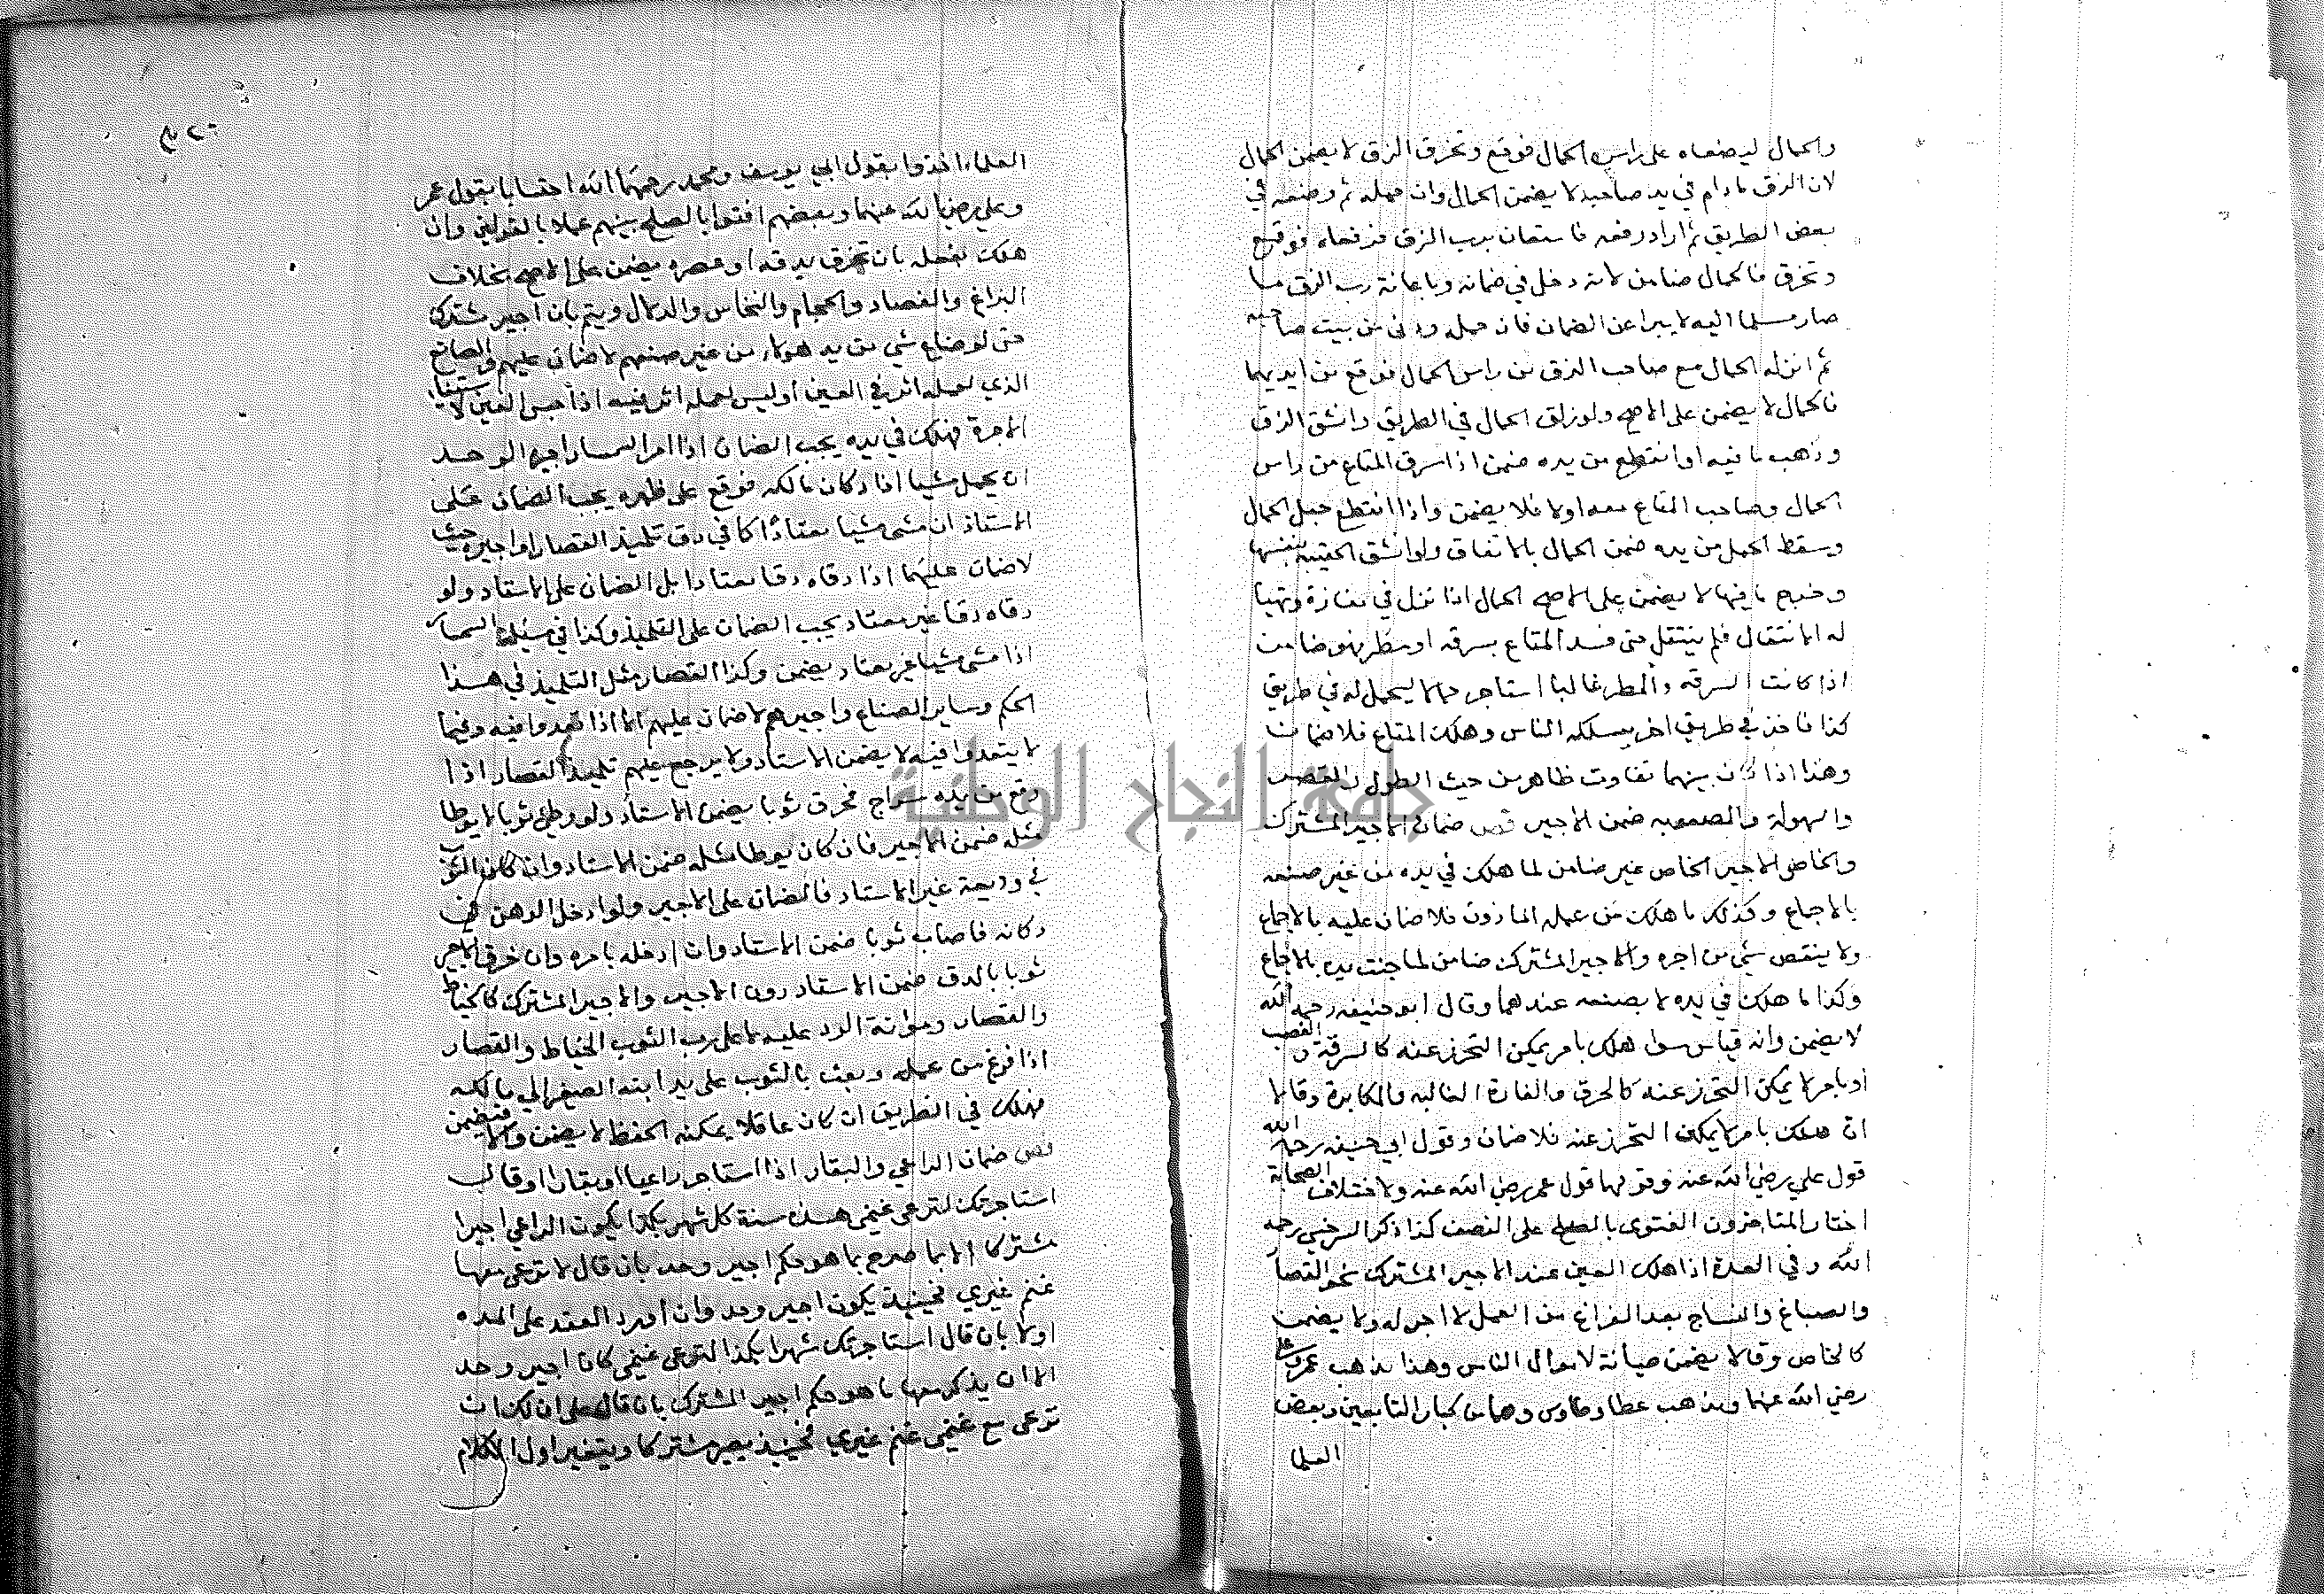 والحمال ليضعاه على راس الحمال فوقع وتخرق الزق لا يضمن الحمال
لان الزق مادام في يد صاحبه لا يضمن الحمال وان حمله ثم وضعه في
بعض الطريق ثم اراد رفعه فاستعان برب الزق فرفعاه فوقع
وتخرق فالحمال ضامن لانه دخل في ضمانه وباعانة رب الزق ما
صار مسلما اليه لا يبرا عن الضمان فان حمله واتى من بيت صاحبه
ثم انزله الحمال مع صاحب الزق من راس الحمال فوقع من ايديهما
فالحمال لا يضمن على الاصح ولو زلق الحمال في الطريق وانشق الزق
وذهب ما فيه او انقطع من يده ضمن اذا سرق المتاع من راس
الحمال وصاحب المتاع معه اولا فلا يضمن واذا انقطع حبل الحمال
وسقط الحمل من يده ضمن الحمال بالاتفاق ولو انشق الحقيبة بنفسها
وخرج ما فيها لا يضمن على الاصح الحمال اذا نزل في مفازة وتهيا
له الانتقال فلم ينتقل حتى فسد المتاع بسرقه او مطر فهو ضامن
اذا كانت السرقه والمطر غالبا استاجر حمالا ليحمل له في طريق
كذا فاخذ في طريق اخر يسلكه الناس وهلك المتاع فلا ضمان
وهذا اذا كان بينهما تفاوت ظاهر من حيث الطول والقصر
والسهولة والصعوبه ضمن الاجير فصل ضمان الاجير المشترك
والخاص الاجير الخاص غير ضامن لما هلك في يده من غير صنعه
بالاجماع وكذلك ما هلك من عمله الماذون فلا ضمان عليه بالاجماع
ولا ينقص شي من اجره والاجير المشترك ضامن لما جنت يده بالاجماع
وكذا ما هلك في يده لا بصنعه عندهما وقال ابو حنيفه رحمه الله
لا يضمن وانه قياس سوا هلك بامر يمكن التحرز عنه كالسرقة والغصب
او بامر لا يمكن التحرز عنه كالحرق والغارة الغالبه والمكابرة وقالا
ان هلك بامر لا يمكن التحرز عنه فلا ضمان وقول ابي حنيفه رحمه الله
قول علي رضي الله عنه وقولهما قول عمر رضي الله عنه ولاختلاف الصحابة
اختار المتاخرون الفتوى بالصلح على النصف كذا ذكر السرخسي رحمه
الله وفي العدة اذا هلك العين عند الاجير المشترك نحو القصار
والصباغ والنساج بعد الفراغ من العمل لا اجر له ولا يضمن
كالخاص وقالا يضمن صيانة لاموال الناس وهذا مذهب عمر وعلي
رضي الله عنهما ومذهب عطا وطاوس وهما من كبار التابعين وبعض
العلما
العلماء اخذوا بقول ابي يوسف ومحمد رحمهما الله احتسابا بقول عمر
وعلي رضي الله عنهما وبعضهم افتوا بالصلح بينهم عملا بالقولين وان
هلك بفعله بان تخرق بدقه او عصره يضمن على الاصح بخلاف
البزاغ والفصاد والحجام والنخاس والدلال ويتم بان اجير مشترك
حتى لو ضاع شي من يد هولاء من غير صنعهم لا ضمان عليهم والصانع
الذي لعمله اثر في العين او ليس لعمله اثر فيه اذا حبس العين لاستيفاء
الاجرة فهلك في يده يجب الضمان اذا امر السمسار اجيره الوحد
ان يحمل شيا اذا كان مالكه فوقع على ظهره يجب الضمان على
الاستاذ ان مشى مشيا معتادا كما في دق تلميذ القصار او اجيره حيث
لا ضمان عليهما اذا دقاه دقا معتادا بل الضمان على الاستاد ولو
دقاه دقا غير معتاد يجب الضمان على التلميذ وكذا في مسئلة السمسار
اذا مشى مشيا غير معتاد يضمن وكذا القصار مثل التلميذ في هذا
الحكم وساير الصناع واجيرهم لا ضمان عليهم الا اذا تعدوا فيه وفيما
لا يتعدوا فيه لا يضمن الاستاد ولا يرجع عليهم تلميذ القصار اذا
وقع من يده سراج فحرق ثوبا يضمن الاستاد ولو وطي ثوبا لا يوطا
مثله ضمن الاجير فان كان يوطا مثله ضمن الاستاد وان كان الثوب
في وديعة غير الاستاد فالضمان على الاجير ولو ادخل الدهن في
دكانه فاصاب ثوبا ضمن الاستاد وان ادخله بامره وان خرق الاجير
ثوبا بالدق ضمن الاستاد دون الاجير والاجير المشترك كالخياط
والقصار ومؤانة الرد عليه لا على رب الثوب الخياط والقصار
اذا فرغ من عمله وبعث بالثوب على يد ابنه الصغير الى مالكه
فهلك في الطريق ان كان عاقلا يمكنه الحفظ لا يضمن والا فيضمن
فصل ضمان الراعي والبقار اذا استاجر راعيا او بقارا وقال
استاجرتك لترعى غنمي هذه سنة كل شهر بكذا يكون الراعي اجيرا
مشتركا الا بما صرح بما هو حكم اجير وحد بان قال لا ترعى معها
غنم غيري فحينئذ يكون اجير وحد وان اورد العقد على المده
اولا بان قال استاجرتك شهرا بكذا لترعى غنمي كان اجير وحد
الا ان يذكر معها ما هو حكم اجير المشترك بان قال على ان لك ان
ترعى مع غنمي غنم غيري فحينئذ يصير مشتركا ويتغير اول الكلام
جامعة النجاح الوطنية